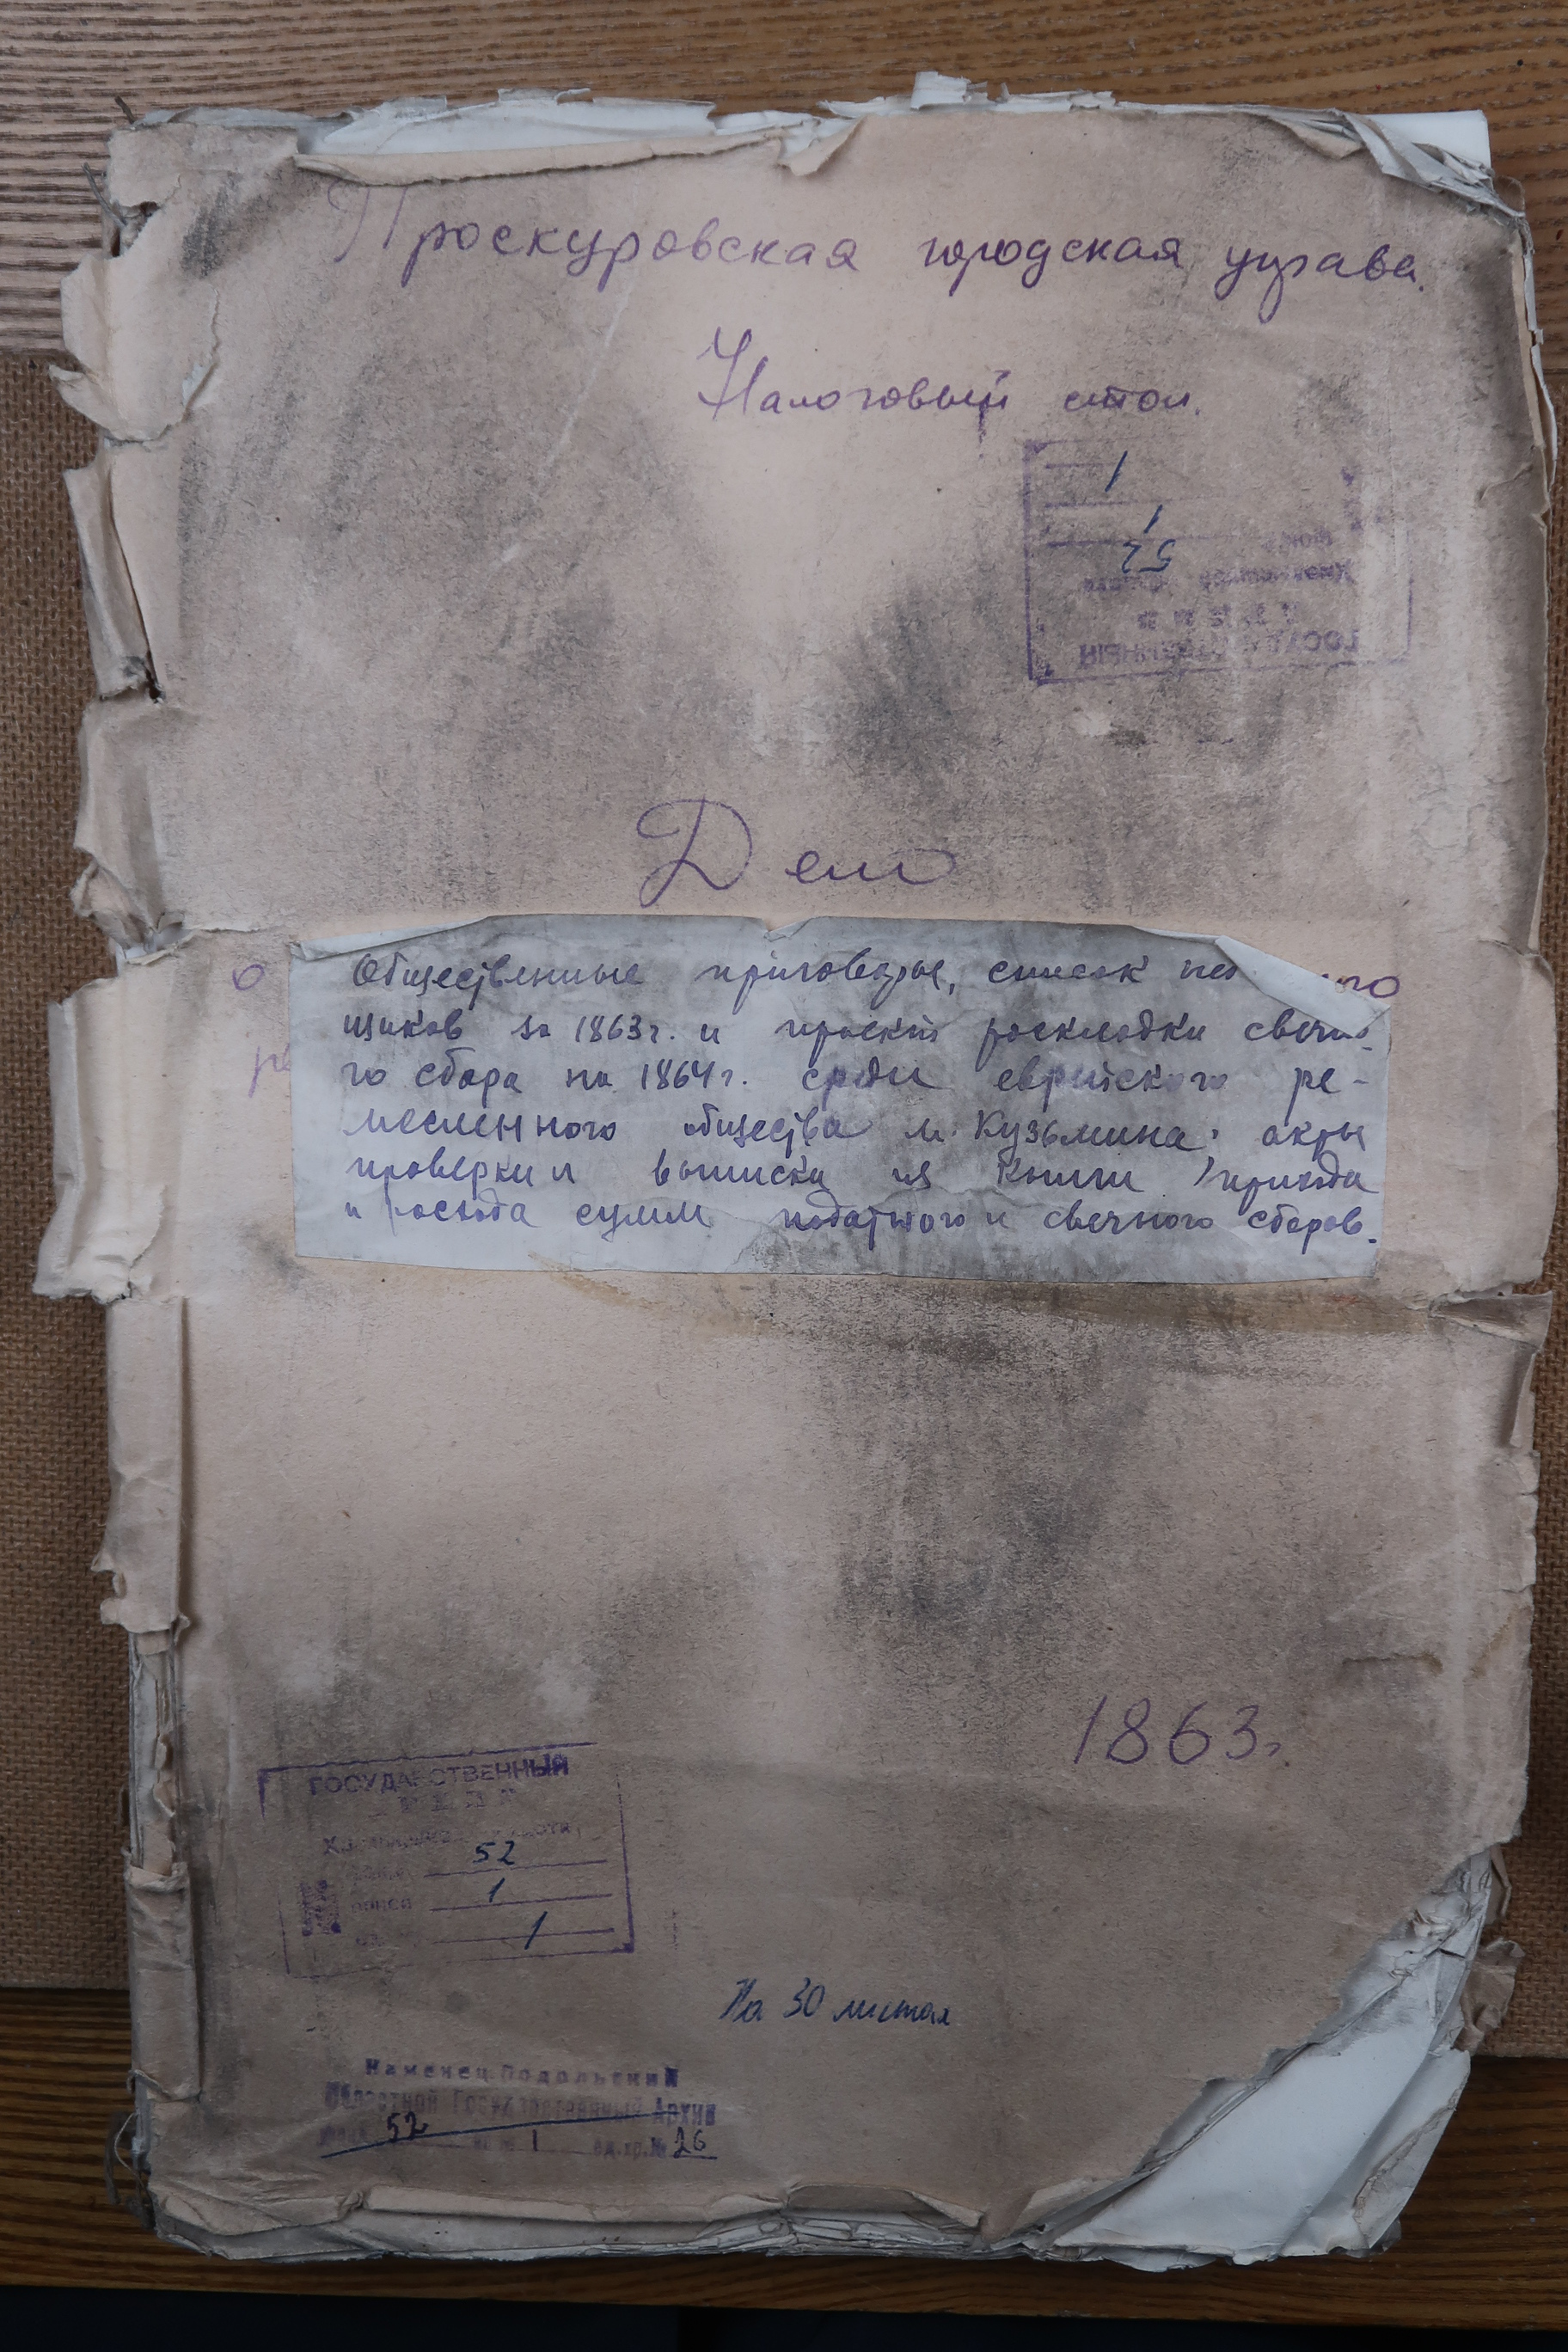 Проскуровская городская управа.
Налоговый стол.
1
1
52
Дело
о
Общественные приговоры, список
го
щиков за 1863 г. и проект раскладки свечно-
го сбора на 1864 г. среди еврейского ре-
месленного общества м. Кузьмина; акты
проверки и выписки из книги прихода
и расхода сумм податного и свечного сборов.
1863 г.
ГОСУДАРСТВЕННЫЙ
52
описи 1
1
На 30 листах
Каменец-Подольский
Областной Государственный Архив
52 1 ед. хр. № 26